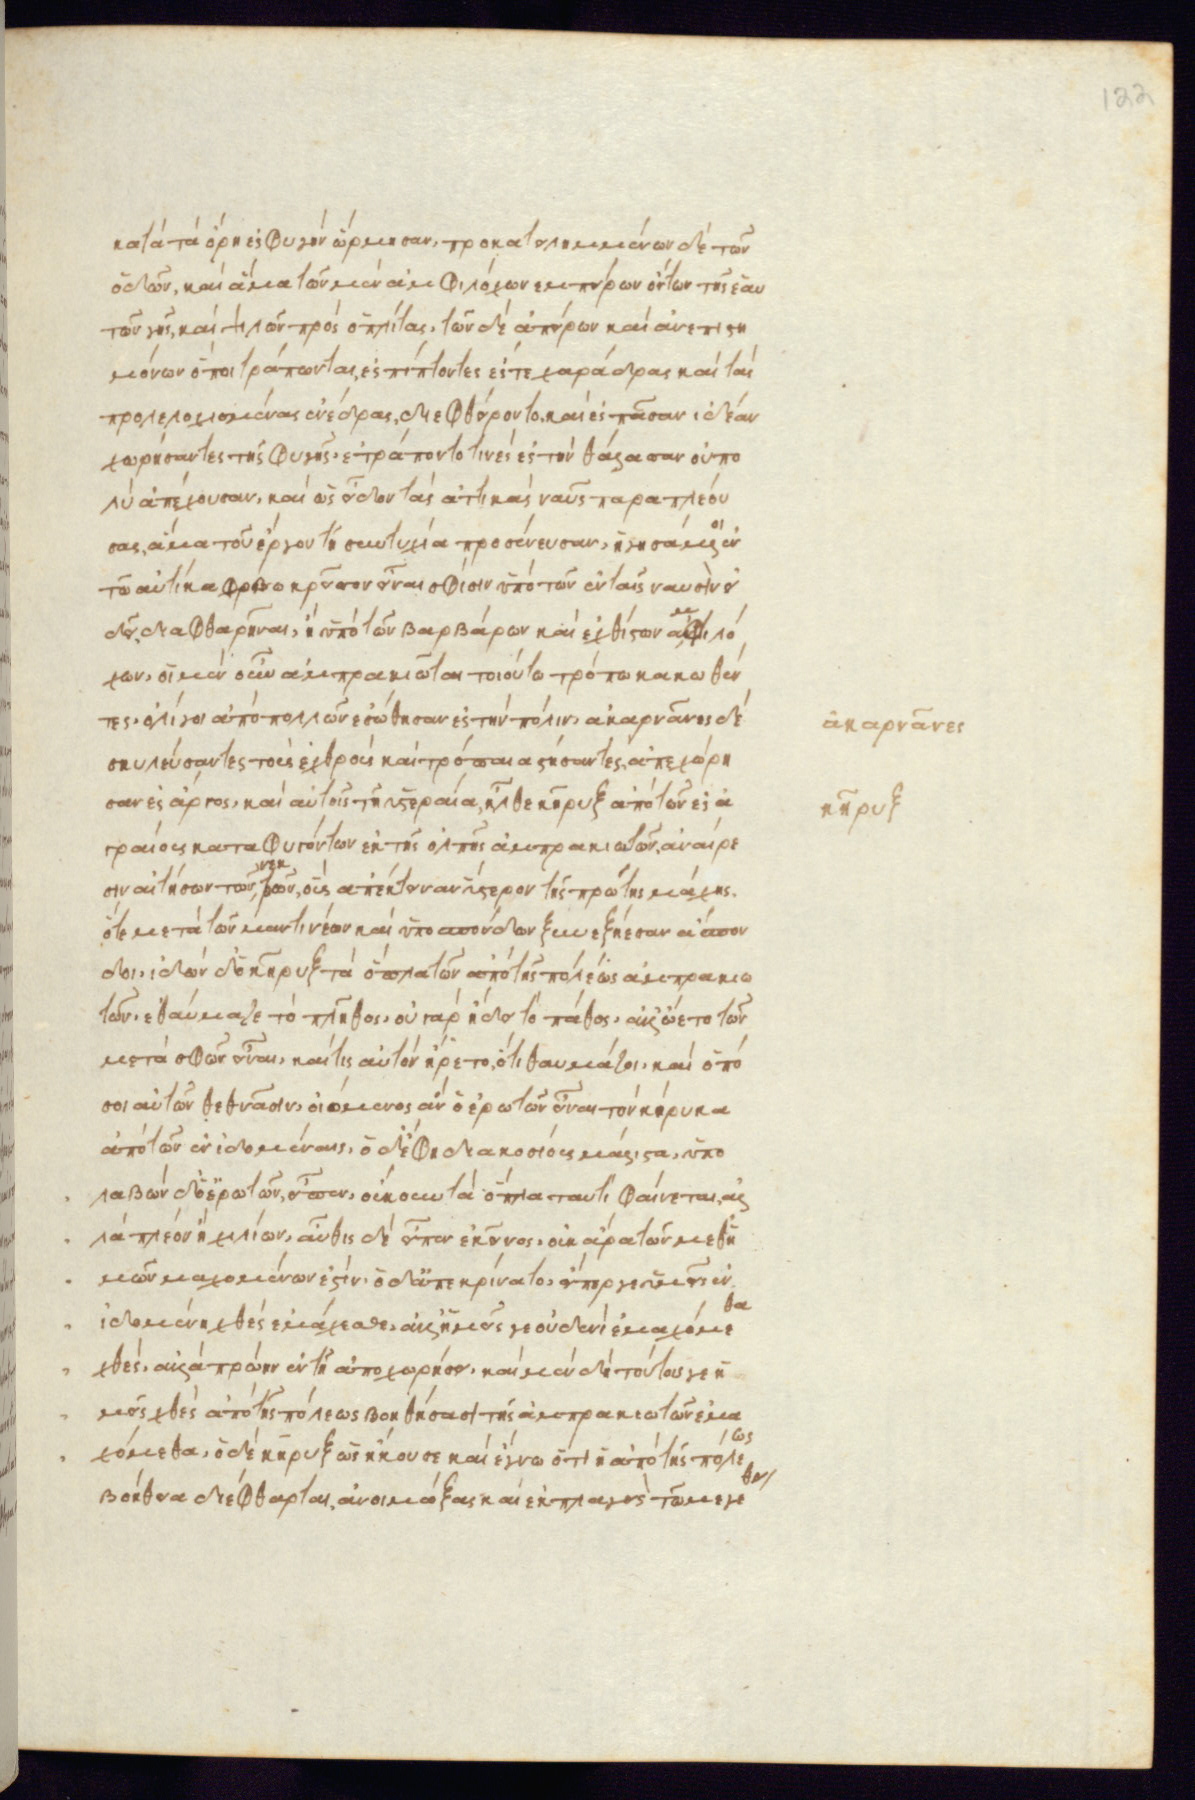 122
κατὰ τὰ ὄρη ἐς φυγὴν ὥρμησαν, προκατειλημμένων δὲ τῶν
ὁδῶν, καὶ ἅμα τῶν μὲν ἀμφιλόχων ἐμπείρων ὄντων τῆς ἑαυ
τῶν γῆς, καὶ ψιλῶν πρὸς ὁπλίτας, τῶν δὲ ἀπείρων καὶ ἀνεπιστη
μόνων ὅποι τράπωνται, ἐσπίπτοντες ἔς τε χαράδρας καὶ τὰς
προλελοχισμένας ἐνέδρας, διεφθείροντο, καὶ ἐς πᾶσαν ἰδέαν
χωρήσαντες τῆς φυγῆς, ἐτράποντό τινες ἐς τὴν θάλασσαν οὐ πο
λὺ ἀπέχουσαν, καὶ ὡς εἶδον τὰς ἀττικὰς ναῦς παραπλεού
σας, ἅμα τοῦ ἔργου τῆ συντυχία προσένευσαν, ἡγησάμενοι ἐν
τῶ αὐτίκα φόβω κρεῖσσον εἶναι σφίσιν ὑπὸ τῶν ἐν ταῖς ναυσὶν εἰ
δεῖ, διαφθαρῆναι, ἢ ὑπὸ τῶν βαρβάρων καὶ ἐχθίστων ἀμφιλό
χων, οἱ μὲν οὖν ἀμπρακιῶται τοιούτω τρόπω κακωθέν
τες, ὀλίγοι ἀπὸ πολλῶν ἐσώθησαν ἐς τὴν πόλιν, ἀκαρνᾶνες δὲ
σκυλεύσαντες τοὺς ἐχθροὺς καὶ τρόπαια στήσαντες, ἀπεχώρη
σαν ἐς ἄργος, καὶ αὐτοῖς τῆ ὑστεραία, ἦλθε κῆρυξ ἀπὸ τῶν ἐς ἀ
γραίους καταφυγόντων ἐκ τῆς ὄλπης ἀμπρακιωτῶν, ἀναίρε
σιν αἰτήσων τῶν νεκρῶν, οὓς ἀπέκτειναν ὕστερον τῆς πρώτης μάχης.
ὅτε μετὰ τῶν μαντινέων καὶ ὑποσπόνδων ξυνεξήεσαν ἄσπον
δοι, ἰδὼν δ' ὁ κῆρυξ τὰ ὅπλα τῶν ἀπὸ τῆς πόλεως ἀμπρακιω
τῶν, ἐθαύμαζε τὸ πλῆθος, οὐ γὰρ ἤδει τὸ πάθος, ἀλλ' ὤετο τῶν
μετὰ σφῶν εἶναι, καί τις αὐτὸν ἤρετο, ὅτι θαυμάζοι, καὶ ὁπό
σοι αὐτῶν τεθνᾶσιν, οἰόμενος αὖ ὁ ἐρωτῶν εἶναι τὸν κήρυκα
ἀπὸ τῶν ἐν ἰδομέναις, ὁ δ' ἔφη διακοσίους μάλιστα, ὑπο
λαβὼν δ' ὁ ἐρωτῶν, εἶπεν, οὔκουν τὰ ὅπλα ταυτὶ φαίνεται, ἀλ
λὰ πλέον ἢ χιλίων, αὖθις δὲ εἶπεν ἐκεῖνος, οὐκ ἄρα τῶν μεθ' ἡ
μῶν μαχομένων ἐστίν, ὁ δ' ἀπεκρίνατο, εἴπερ γε ὑμεῖς ἐν
ἰδομένη χθὲς ἐμάχεσθε, ἀλλ' ἡμεῖς γε οὐδενὶ ἐμαχόμεθα
χθές, ἀλλὰ πρώην ἐν τῆ ἀποχωρήσει, καὶ μὲν δὴ τούτοις γε ἡ
μεῖς χθὲς ἀπὸ τῆς πόλεως βοηθήσασι τῆς ἀμπρακιωτῶν ἐμα
χόμεθα, ὁ δὲ κῆρυξ ὡς ἤκουσε καὶ ἔγνω ὅτι ἡ ἀπὸ τῆς πόλεως
βοήθεια διέφθαρται, ἀνοιμώξας καὶ ἐκπλαγεὶς τῶ μεγέθει
ἀκαρνᾶνες
κῆρυξ